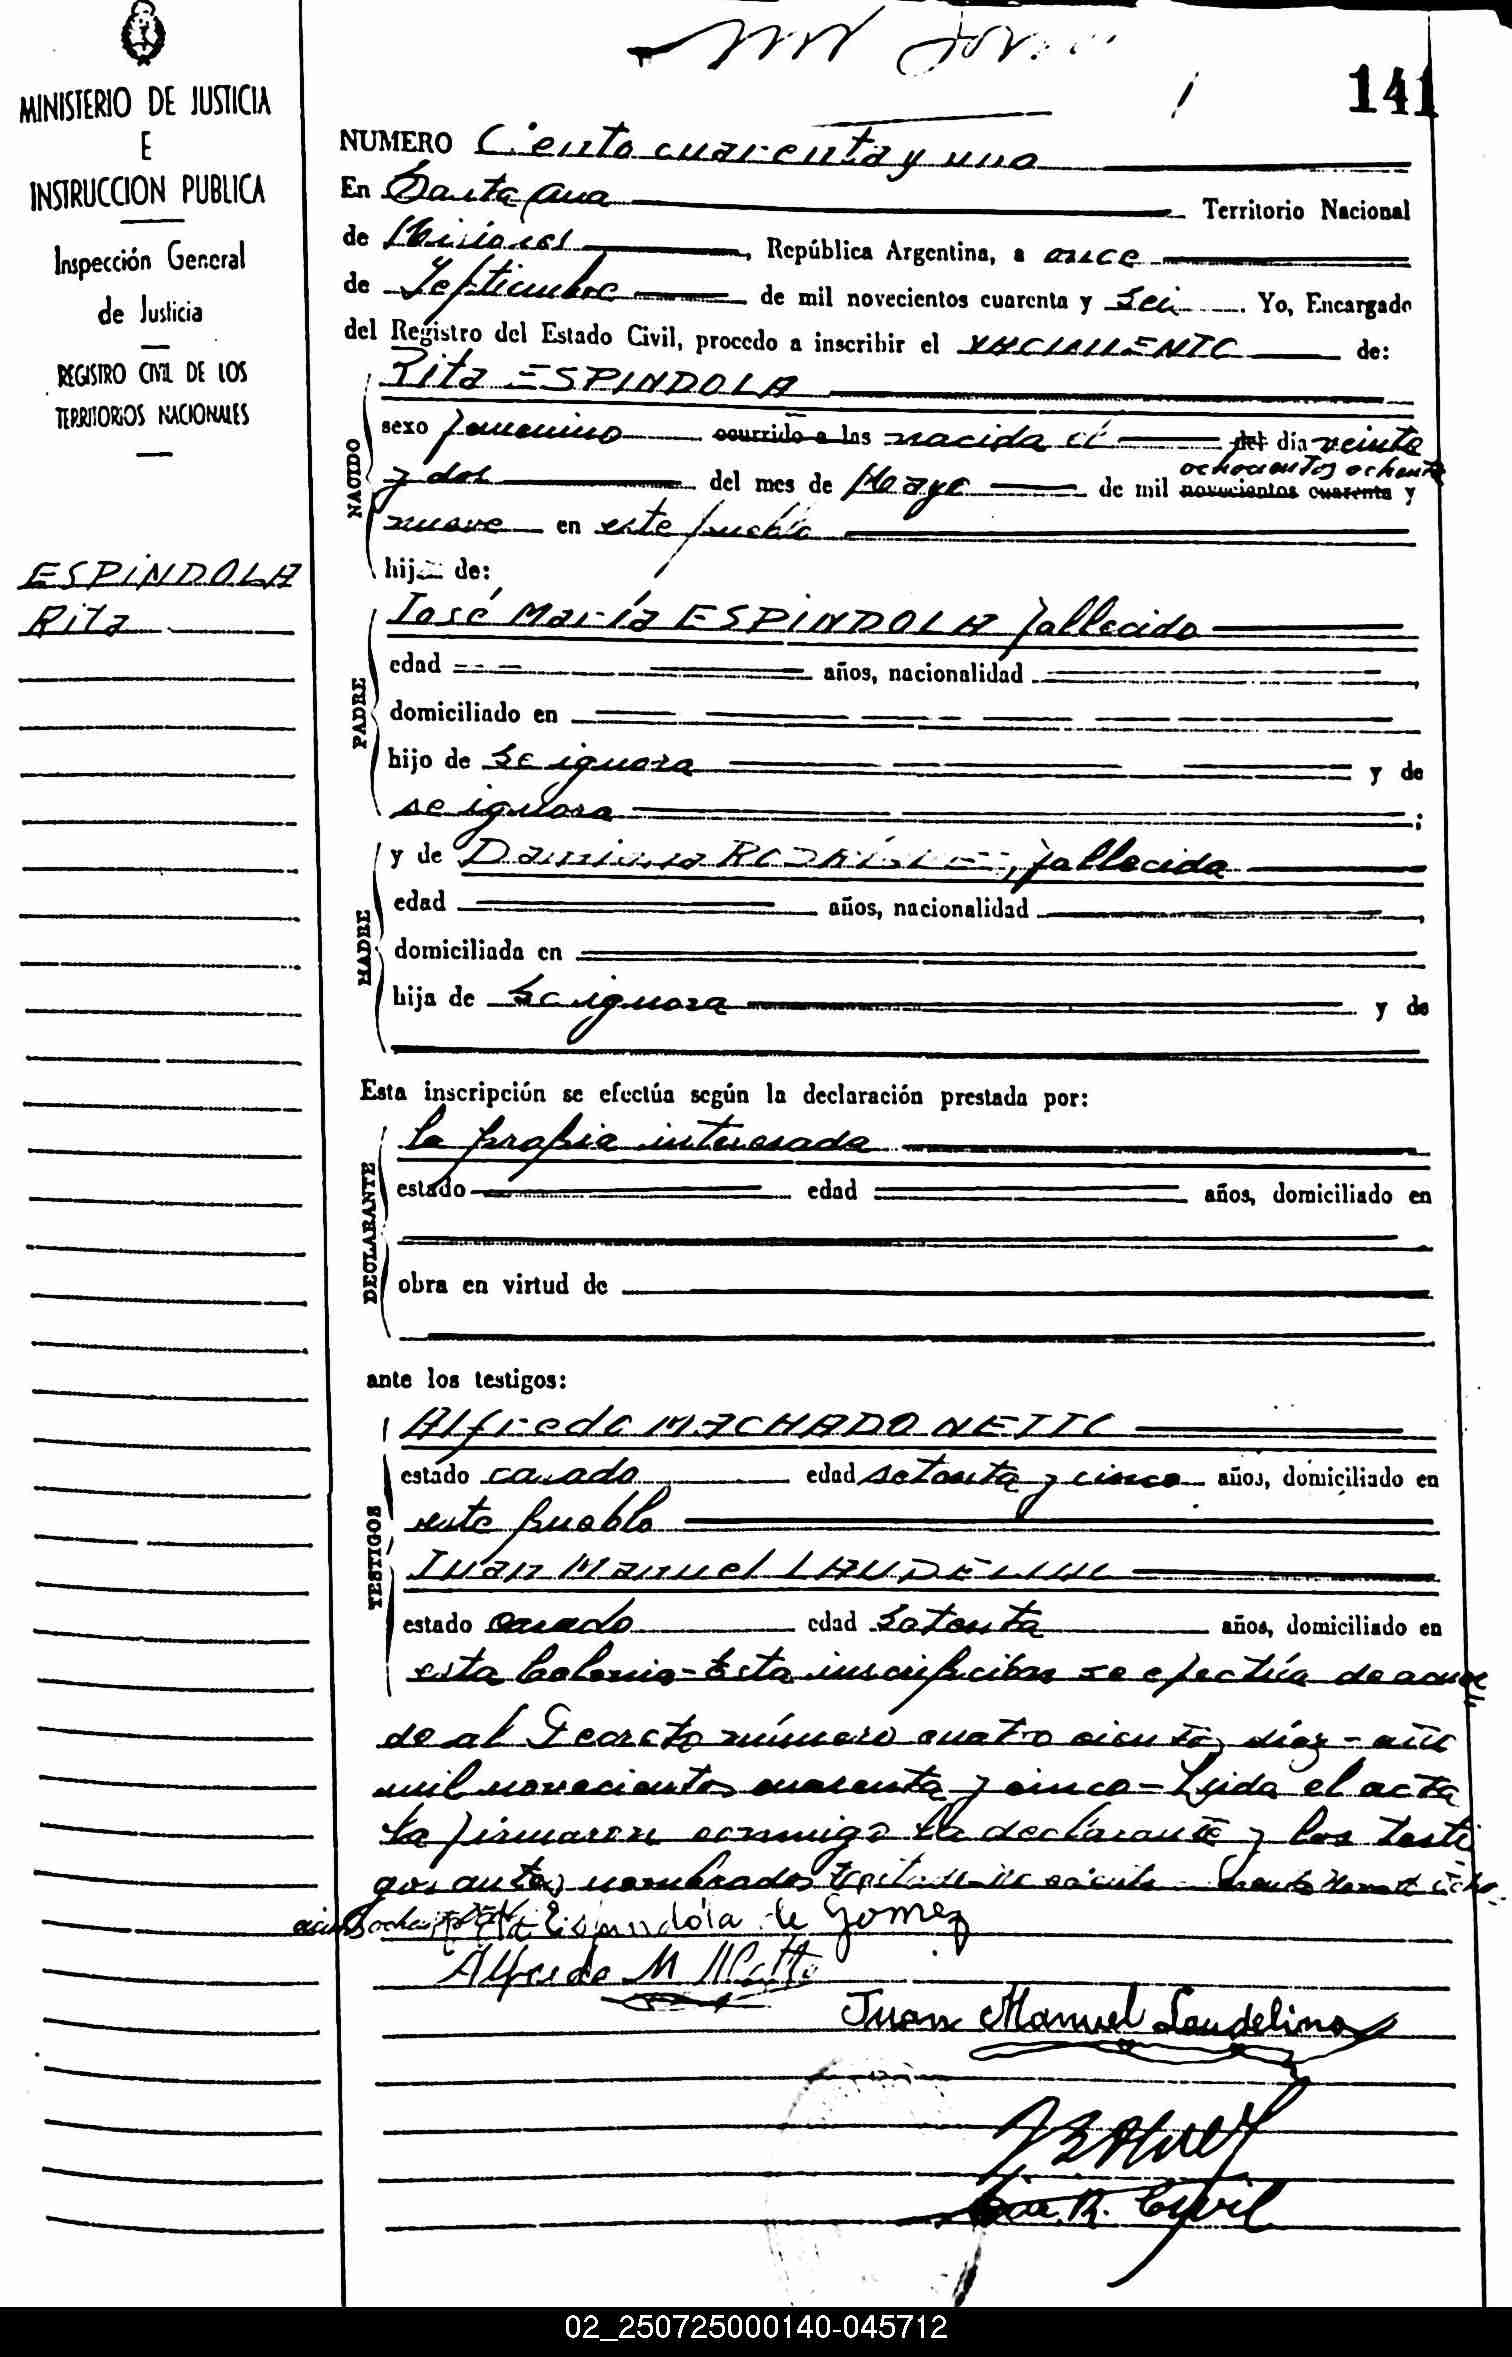 141
MINISTERIO DE JUSTICIA
E
INSTRUCCION PUBLICA
Inspección General
de Justicia
REGISTRO CIVIL DE LOS
TERRITORIOS NACIONALES
ESPINDOLA
Rita
NUMERO Ciento cuarenta y uno
En Santa Ana Territorio Nacional
de Misiones, República Argentina, a once
de Septiembre de mil novecientos cuarenta y seis. Yo, Encargado
del Registro del Estado Civil, procedo a inscribir el NACIMIENTO de:
NACIDO
Rita ESPINDOLA
sexo femenino ocurrido a las nacida el del día veinte
ochocientos ochenta
y dos del mes de Mayo de mil novecientos cuarenta y
nueve en este pueblo
hija de:
PADRE
José María ESPINDOLA fallecido
edad años, nacionalidad
domiciliado en
hijo de Se ignora y de
se ignora;
MADRE
y de Damiana RODRÍGUEZ, fallecida
edad años, nacionalidad
domiciliada en
hija de Se ignora y de
Esta inscripción se efectúa según la declaración prestada por:
DECLARANTE
la propia interesada
estado edad años, domiciliado en
obra en virtud de
ante los testigos:
TESTIGOS
Alfredo MACHADO NETTO
estado casado edad setenta y cinco años, domiciliado en
este pueblo
Juan Manuel LAUDELINO
estado casado edad setenta años, domiciliado en
esta Colonia - Esta inscripción se efectúa de acuer
do al Decreto número cuatro cientos diez - año
mil novecientos cuarenta y cinco - Leida el acta
la firmaron conmigo la declarante y los testi
gos antes nombrados
Espindola de Gomez
Alfredo M Netto
Juan Manuel Laudelino
R. Civil
02_250725000140-045712